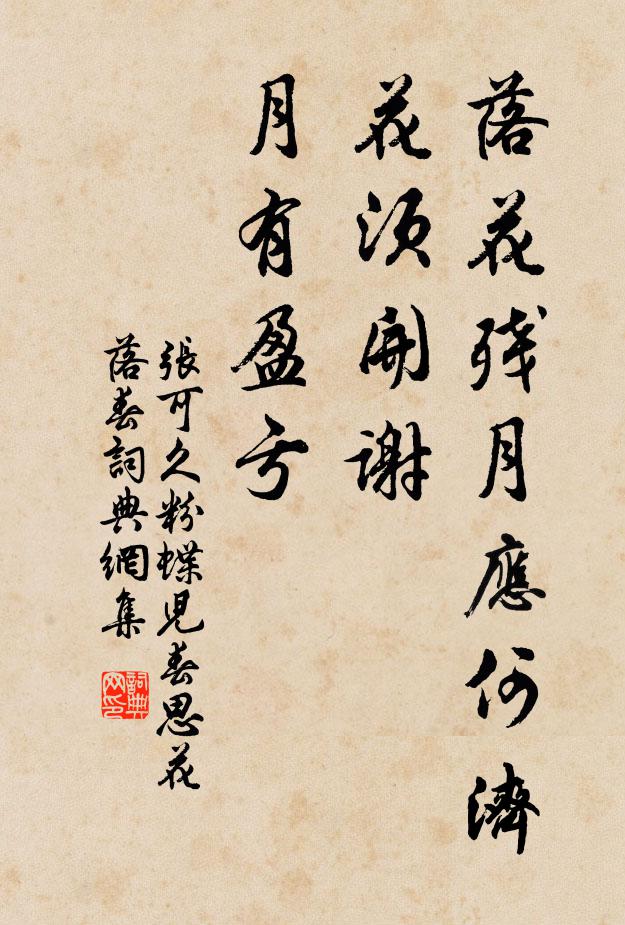 落花残月應何濟
花須開謝
月有盈亏
張可久粉蝶児春思花
落春詞典網集
詞典
网印